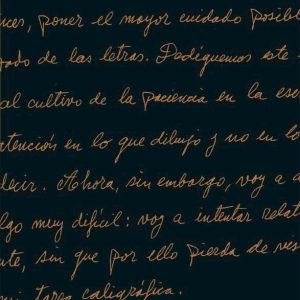 nces, poner el mayor cuidado posible
zado de las letras. Dediquemos este
al cultivo de la paciencia en la esc
atención en lo que dibujo y no en lo
decir. Ahora, sin embargo, voy a a
lgo muy difícil: voy a intentar relat
nte, sin que por ello pierda de vis
mi tarea caligráfica.